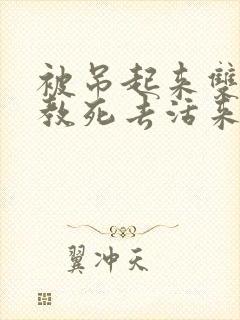 被吊起来雙
教死去活来
翼冲天